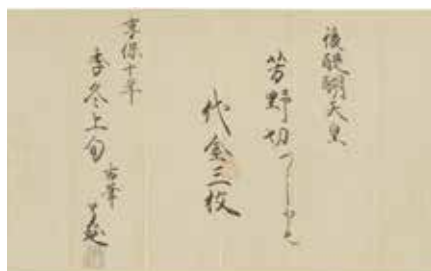 後醍醐天皇
芳野切
代金三枚
享保十年
季冬上旬 古筆
了延